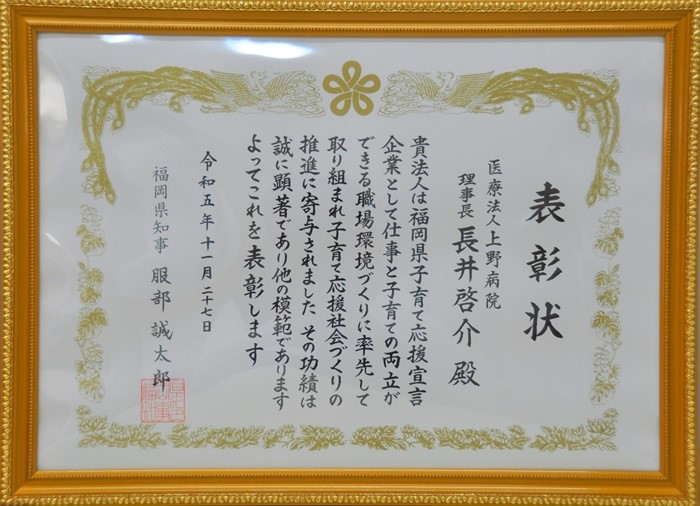 表彰状
医療法人上野病院
理事長 長井啓介 殿
貴法人は福岡県子育て応援宣言
企業として仕事と子育ての両立が
できる職場環境づくりに率先して
取り組まれ子育て応援社会づくりの
推進に寄与されました その功績は
誠に顕著であり他の模範であります
よってこれを表彰します
令和五年十一月二十七日
福岡県知事 服部誠太郎